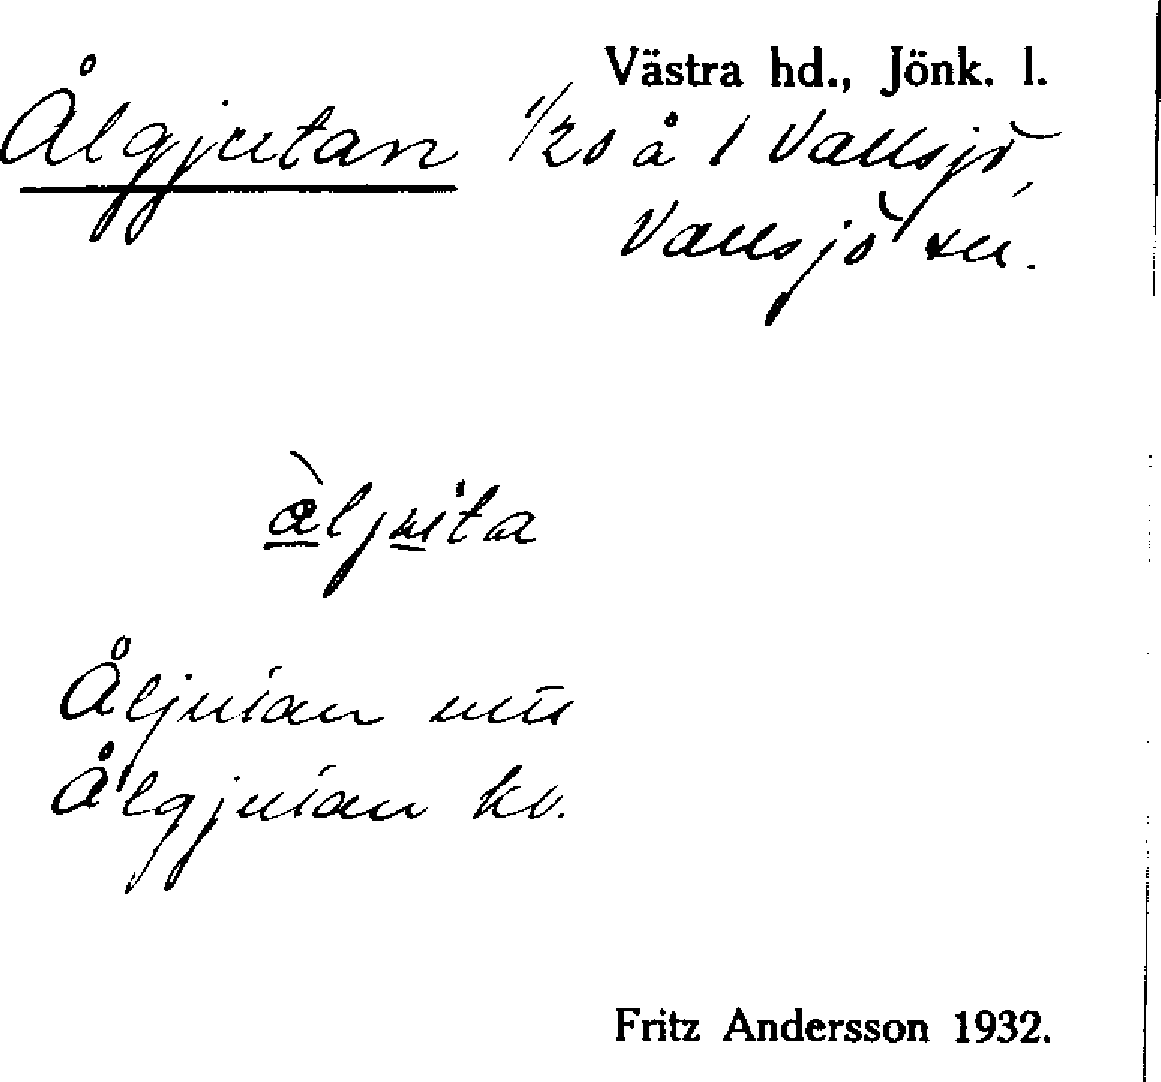 Västra hd., Jönk. l.
Ålgjutan 1/20 å 1 Vallsjö,
Vallsjö sn.
àljuta
Åljutan mtl
Ålgjutan kv.
Fritz Andersson 1932.